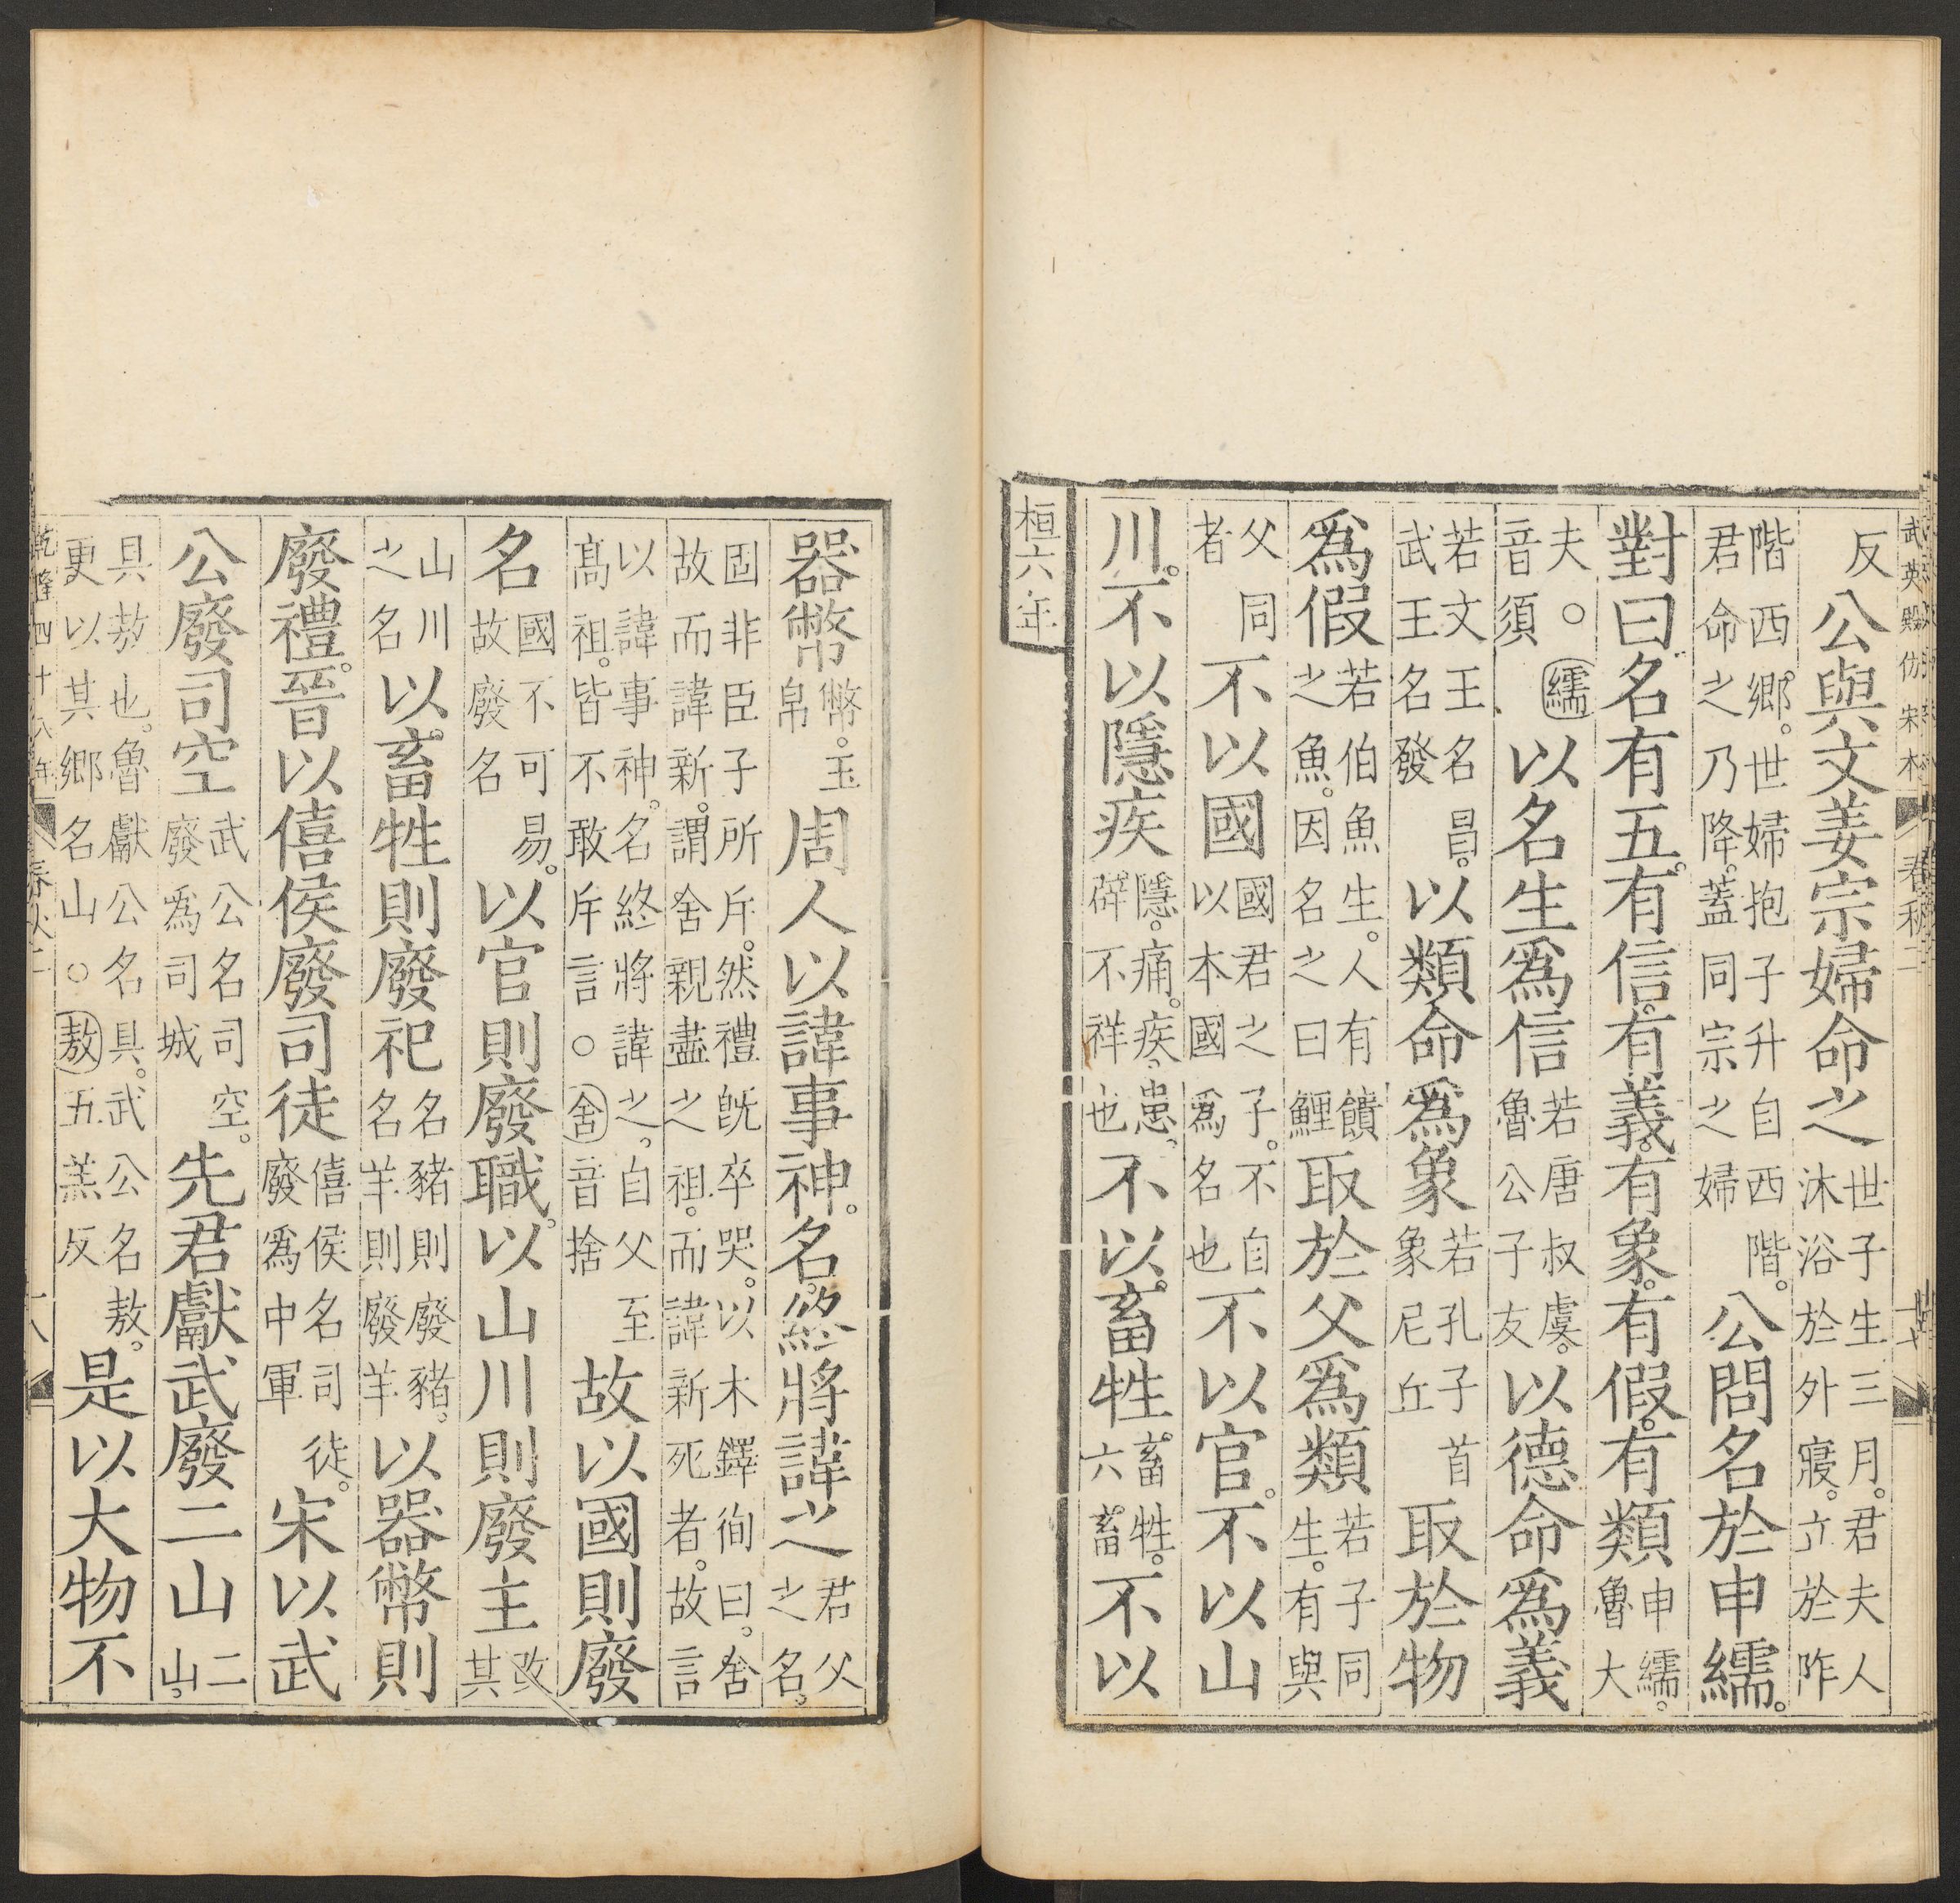 武英殿仿宋本 春秋二
反公與文姜宗婦命之世子生三月。君夫人沐浴於外寢。立於阼
階西鄉。世婦抱子升自西階。君命之乃降。蓋同宗之婦公問名於申繻。
對曰名有五。有信。有義。有象。有假。有類申繻。魯大
夫。○繻音須以名生爲信若唐叔虞。魯公子友以德命爲義
若文王名昌。武王名發以類命爲象若孔子首象尼丘取於物
爲假若伯魚生。人有饋之魚。因名之曰鯉取於父爲類若子同生。有與
父同者不以國國君之子。不自以本國爲名也不以官。不以山
川。不以隱疾隱。痛。疾、患、辟不祥也不以畜牲畜牲。六畜。不以
桓六年
器幣幣。玉帛周人以諱事神。名。終將諱之君父之名。
固非臣子所斥。然禮既卒哭。以木鐸徇曰。舍故而諱新。謂舍親盡之祖。而諱新死者。故言
以諱事神。名終將諱之、自父至高祖。皆不敢斥言○舍音捨故以國則廢
名國不可易。故廢名以官則廢職。以山川則廢主改其
山川之名以畜牲則廢祀名豬則廢豬。名羊則廢羊以器幣則
廢禮。晉以僖侯廢司徒僖侯名司徒。廢爲中軍宋以武
公廢司空武公名司空。廢爲司城先君獻武廢二山二山。
具敖也。魯獻公名具。武公名敖。更以其鄉名山○敖五羔反是以大物不
乾隆四十八年 春秋二 十八